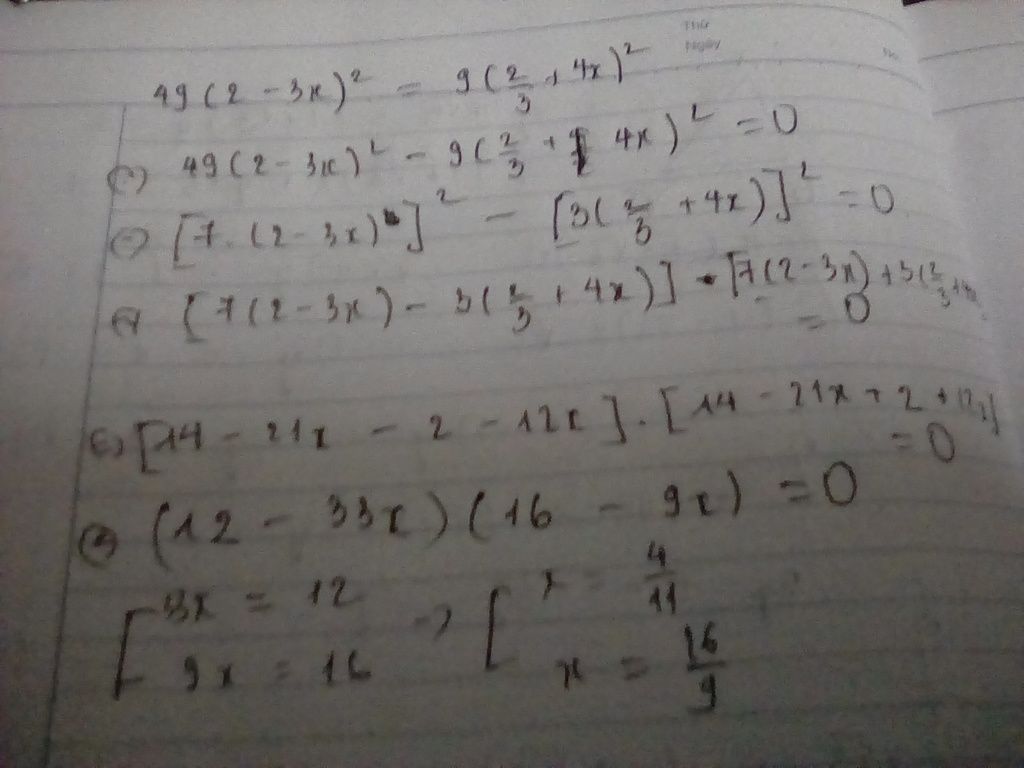 Thứ
Ngày
No.
49(2 - 3x)² = 9(2/3 + 4x)²
(=) 49(2 - 3x)² - 9(2/3 + 4x)² = 0
(=) [7.(2 - 3x)]² - [3(2/3 + 4x)]² = 0
(=) [7(2 - 3x) - 3(2/3 + 4x)] . [7(2 - 3x) + 3(2/3 + 4x
= 0
(=) [14 - 21x - 2 - 12x] . [14 - 21x + 2 + 12x]
= 0
(=) (12 - 33x)(16 - 9x) = 0
[ 33x = 12 => [ x = 4/11
9x = 16 x = 16/9